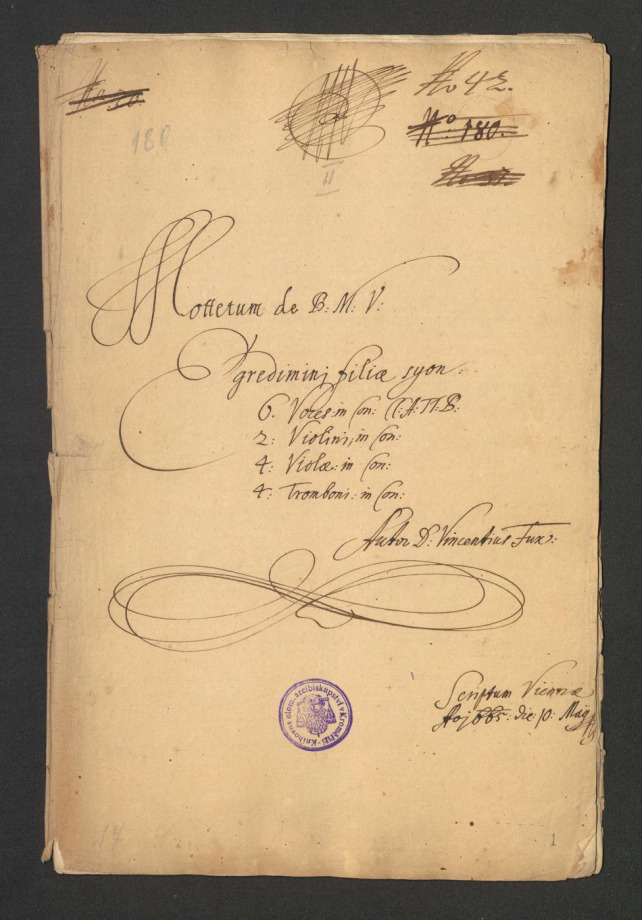 No 42.
No: 180.
180
II
Mottetum de B: M: V:
Egredimini filiæ syon:
6. Voces: in Con: CC: A: TT: B:
2: Violini, in Con:
4: Violæ: in Con:
4: Tromboni: in Con:
Autor D: Vincentius Fux:
Knihovna olom. arcibiskupství v Kroměříži
Scriptum Viennæ
Ao 1665: die 10: Maÿ
17
1